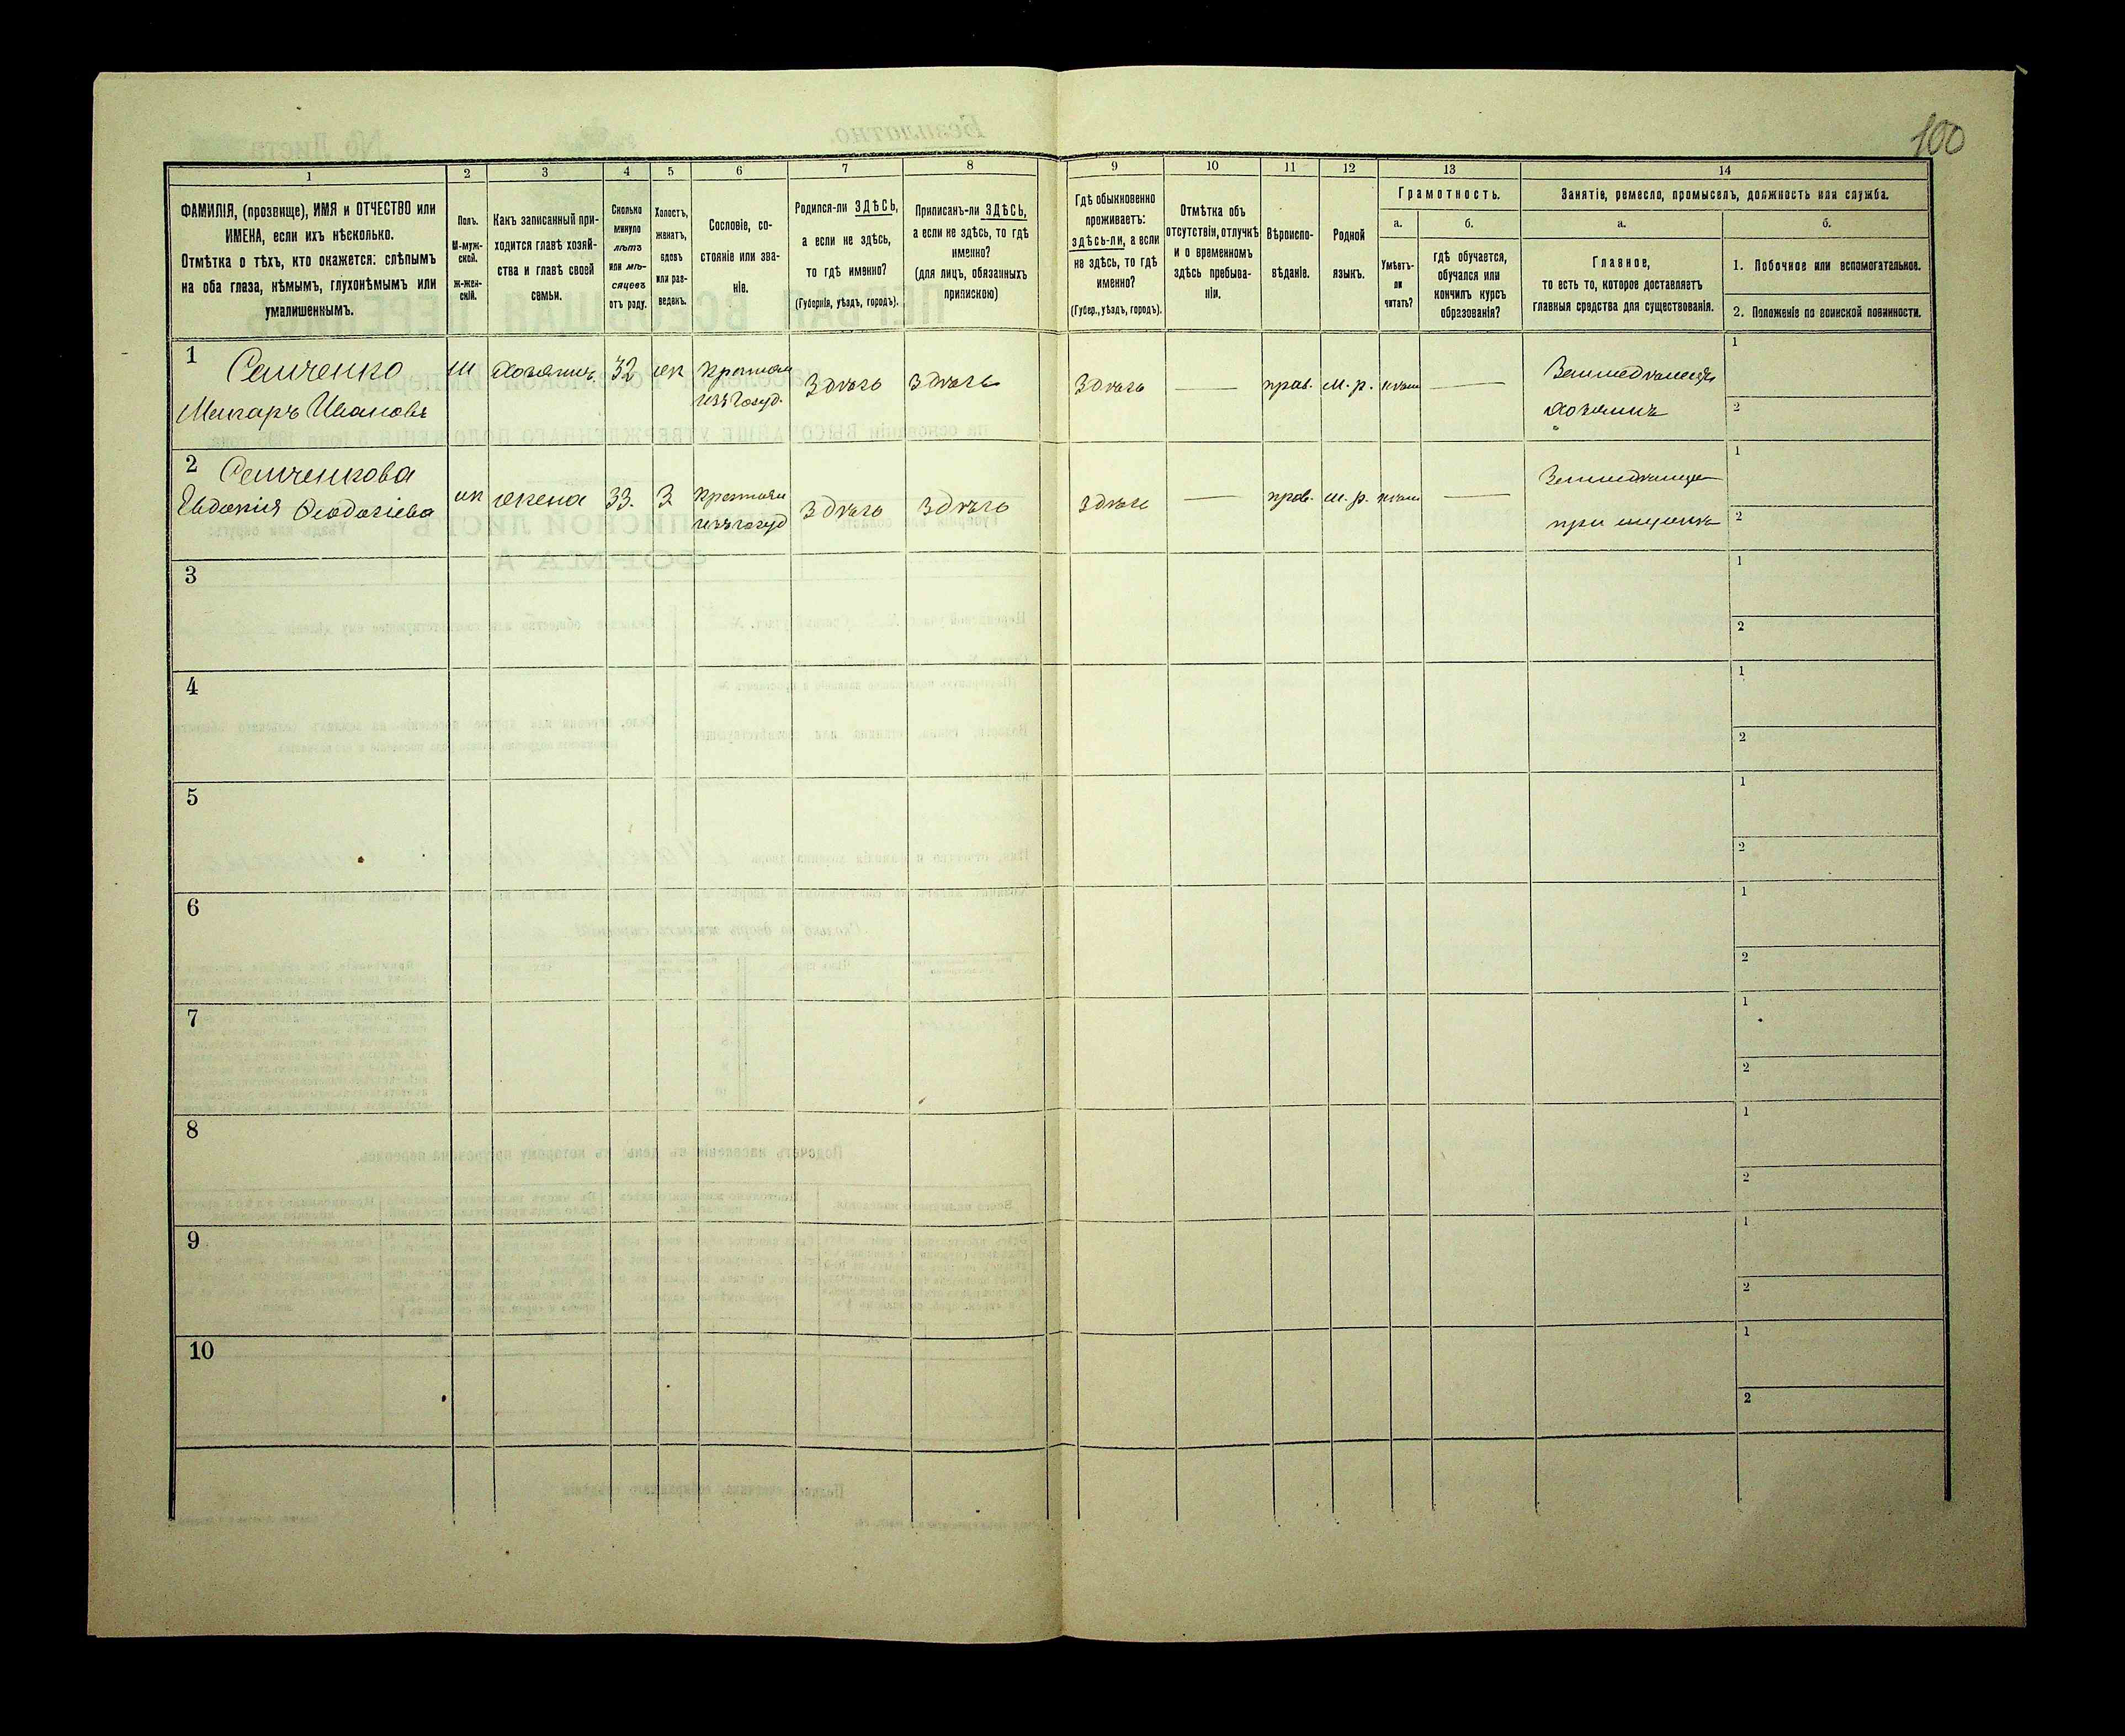 100
1
2
3
4
5
6
7
8
9
10
11
12
13
14
ФАМИЛІЯ, (прозвище), ИМЯ и ОТЧЕСТВО или
ИМЕНА, если ихъ нѣсколько.
Отмѣтка о тѣхъ, кто окажется: слѣпымъ
на оба глаза, нѣмымъ, глухонѣмымъ или
умалишеннымъ.
Полъ.
М-муж-
ской.
ж-жен-
скій.
Какъ записанный при-
ходится главѣ хозяй-
ства и главѣ своей
семьи.
Сколько
минуло
лѣтъ
или мѣ-
сяцевъ
отъ роду.
Холостъ,
женатъ,
вдовъ
или раз-
веденъ.
Сословіе, со-
стояніе или зва-
ніе.
Родился-ли ЗДѢСЬ,
а если не здѣсь,
то гдѣ именно?
(Губернія, уѣздъ, городъ).
Приписанъ-ли ЗДѢСЬ,
а если не здѣсь, то гдѣ
именно?
(для лицъ, обязанныхъ
припискою)
Гдѣ обыкновенно
проживаетъ:
здѣсь-ли, а если
не здѣсь, то гдѣ
именно?
(Губер., уѣздъ, городъ).
Отмѣтка объ
отсутствіи, отлучкѣ
и о временномъ
здѣсь пребыва-
ніи.
Вѣроиспо-
вѣданіе.
Родной
языкъ.
Грамотность.
а.
Умѣетъ-
ли
читать?
б.
гдѣ обучается,
обучался или
кончилъ курсъ
образованія?
Занятіе, ремесло, промыселъ, должность или служба.
а.
Главное,
то есть то, которое доставляетъ
главныя средства для существованія.
б.
1. Побочное или вспомогательное.
2. Положеніе по воинской повинности.
1
Семченко
Макаръ Ивановъ
м
хозяинъ
32
ж
Крестьян
изъ госуд.
Здѣсь
Здѣсь
Здѣсь
прав.
м. р.
нѣтъ
Земледѣлецъ
хозяинъ
1
2
2
Семченкова
Евдокія Ѳеодосіева
ж
жена
33.
З
Крестьян
изъ госуд
Здѣсь
Здѣсь
Здѣсь
прав.
м. р.
нѣтъ
при мужѣ
1
2
3
1
2
4
1
2
5
1
2
6
1
2
7
1
2
8
1
2
9
1
2
10
1
2